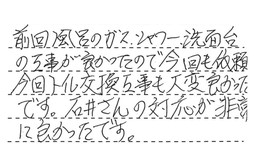 前回風呂のガス、シャワー洗面台
の工事が良かったので今回も依頼
今回トイレ交換工事も大変良かった
です。石井さんの対応が非常
に良かったです。